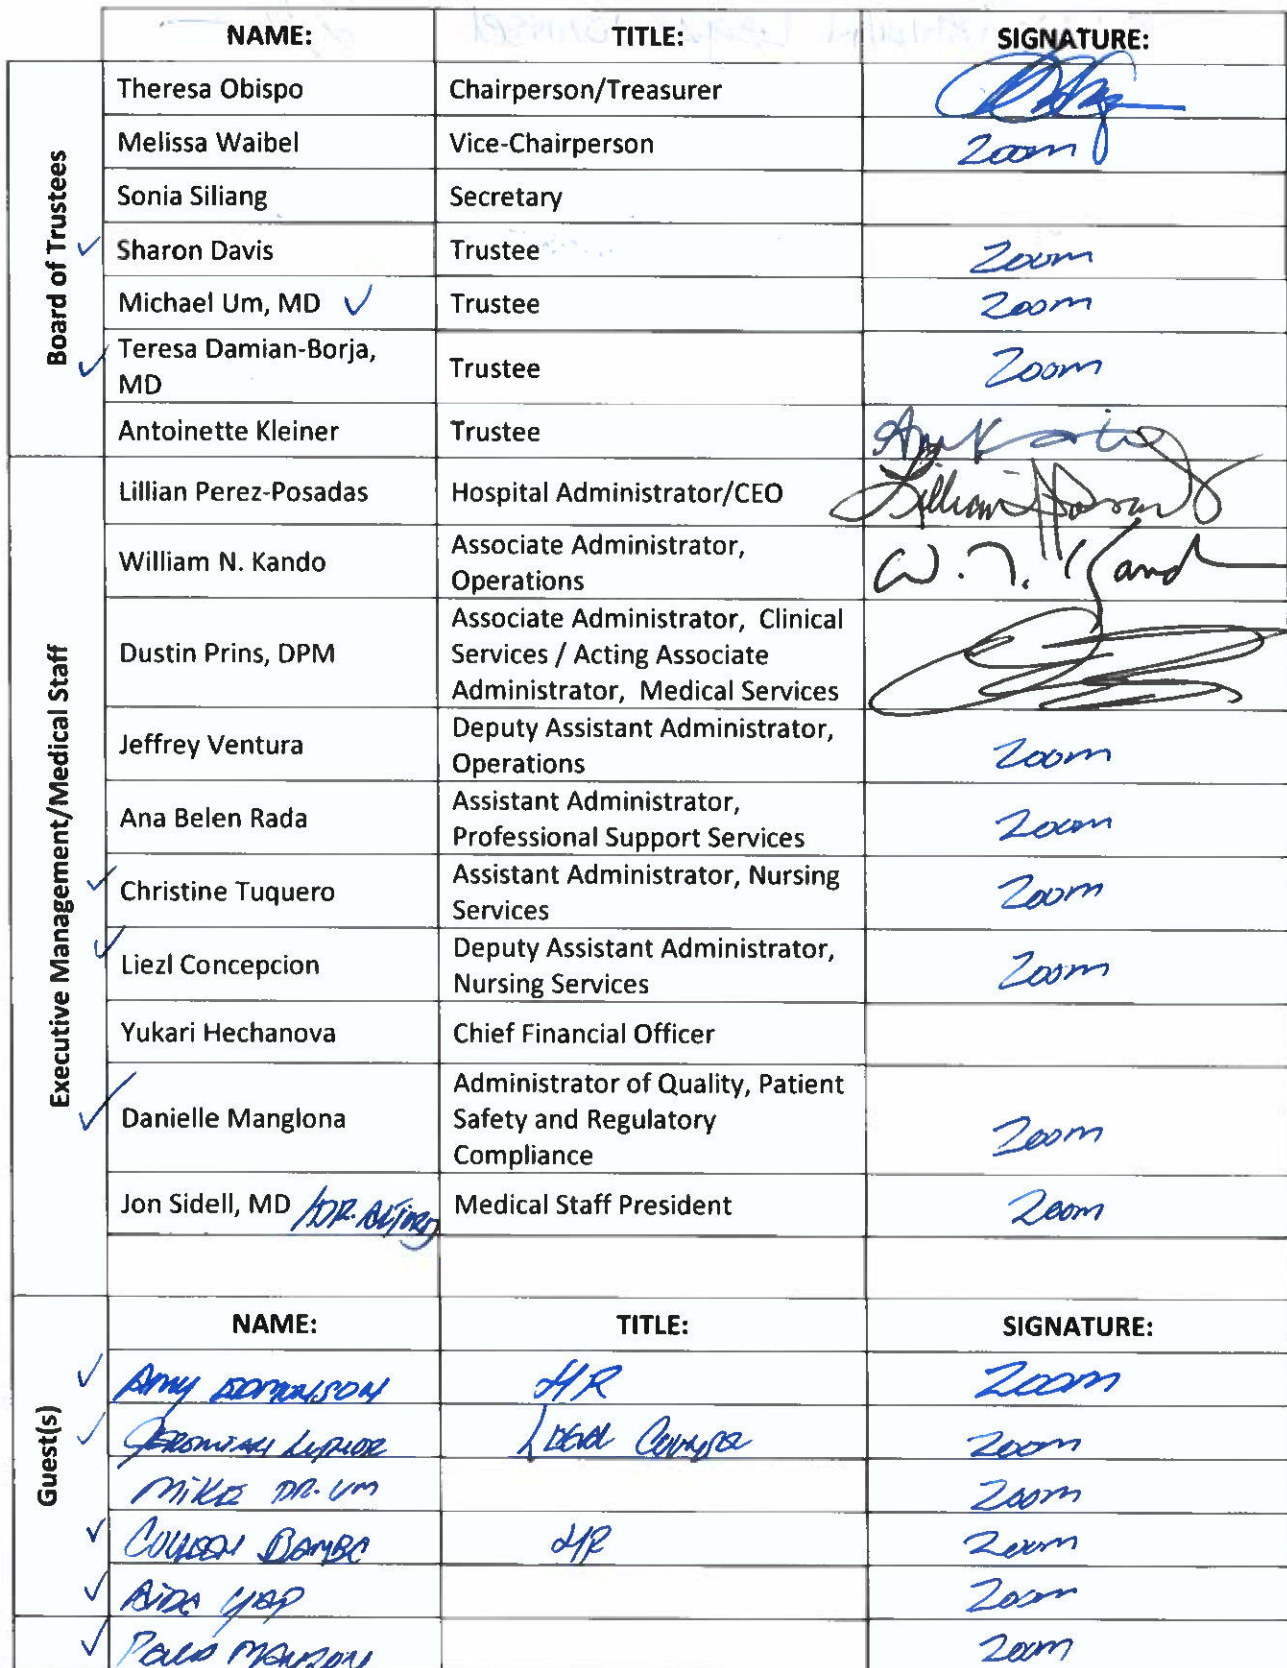 NAME: TITLE: SIGNATURE:
Board of Trustees
Theresa Obispo Chairperson/Treasurer
Melissa Waibel Vice-Chairperson Zoom
Sonia Siliang Secretary
Sharon Davis Trustee Zoom
Michael Um, MD Trustee Zoom
Teresa Damian-Borja,
MD Trustee Zoom
Antoinette Kleiner Trustee
Executive Management/Medical Staff
Lillian Perez-Posadas Hospital Administrator/CEO
William N. Kando Associate Administrator,
Operations W. N. Kand
Dustin Prins, DPM Associate Administrator, Clinical
Services / Acting Associate
Administrator, Medical Services
Jeffrey Ventura Deputy Assistant Administrator,
Operations Zoom
Ana Belen Rada Assistant Administrator,
Professional Support Services Zoom
Christine Tuquero Assistant Administrator, Nursing
Services Zoom
Liezl Concepcion Deputy Assistant Administrator,
Nursing Services Zoom
Yukari Hechanova Chief Financial Officer
Danielle Manglona Administrator of Quality, Patient
Safety and Regulatory
Compliance Zoom
Jon Sidell, MD /DR. Medical Staff President Zoom
NAME: TITLE: SIGNATURE:
Guest(s)
Amy HR Zoom
Legal Zoom
MIKE DR. UM Zoom
HR Zoom
AIDA YAP Zoom
Zoom